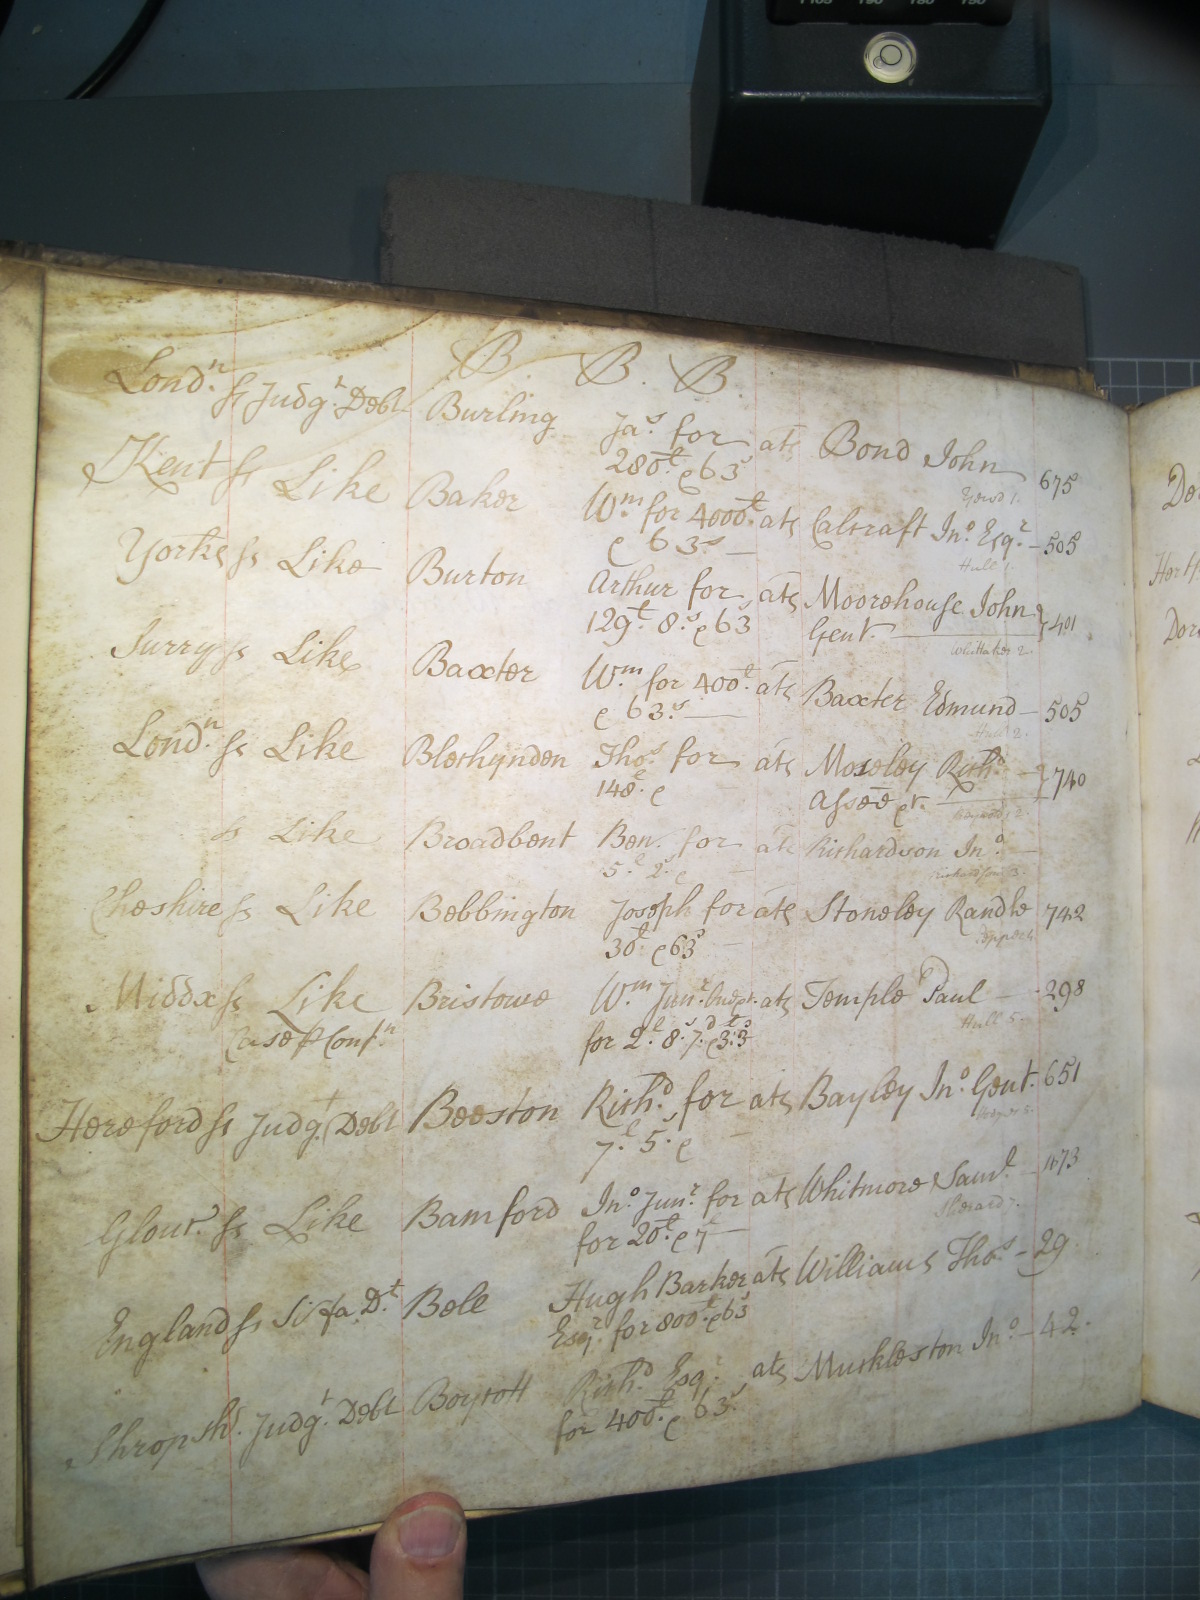 B. B. B.
Lond.n ss Judg.t Debt Burling Ja.s for ats Bond John 675
280£ & 63s
Kent ss Like Baker W.m for 4000£ ats Calcraft Jn.o Esq.r - 505
& 63s Hull 1.
Yorke ss Like Burton Arthur for ats Moorehouse John 401
129£. 8.s & 63s Gent.
Whittaker 2.
Surry ss Like Baxter W.m for 400£ ats Baxter Edmund - 505
& 63.s Hull 2.
Lond.n ss Like Bleshynden Tho.s for ats Moseley Rich.d 740
148£ &
ss Like Broadbent Ben. for ats Richardson Jn.o
5£ 2s & Richardson 3.
Cheshire ss Like Bebbington Joseph for ats Stoneley Randle 742
30£ & 63s
Middx ss Like Bristowe W.m Jun.r ats Temple Paul - 298
Case & Conf.n for 2£. 8s. 7d & 3£: 3s Hull 5.
Hereford ss Judg.t Debt Beeston Rich.d for ats Bayley Jn.o Gent. 651
7£ 5s &
Glouc.r ss Like Bamford Jn.o Jun.r for ats Whitmore Saml - 1173
for 20£ & 7
England ss Sci fa D.t Bele Hugh Barker ats Williams Tho.s - 29
Esq.r for 800£ & 63s
Shropsh.r Judg.t Debt Boycott Rich.d Esq.r ats Muckleston Jn.o - 42.
for 400£ & 63s
Do
Dor